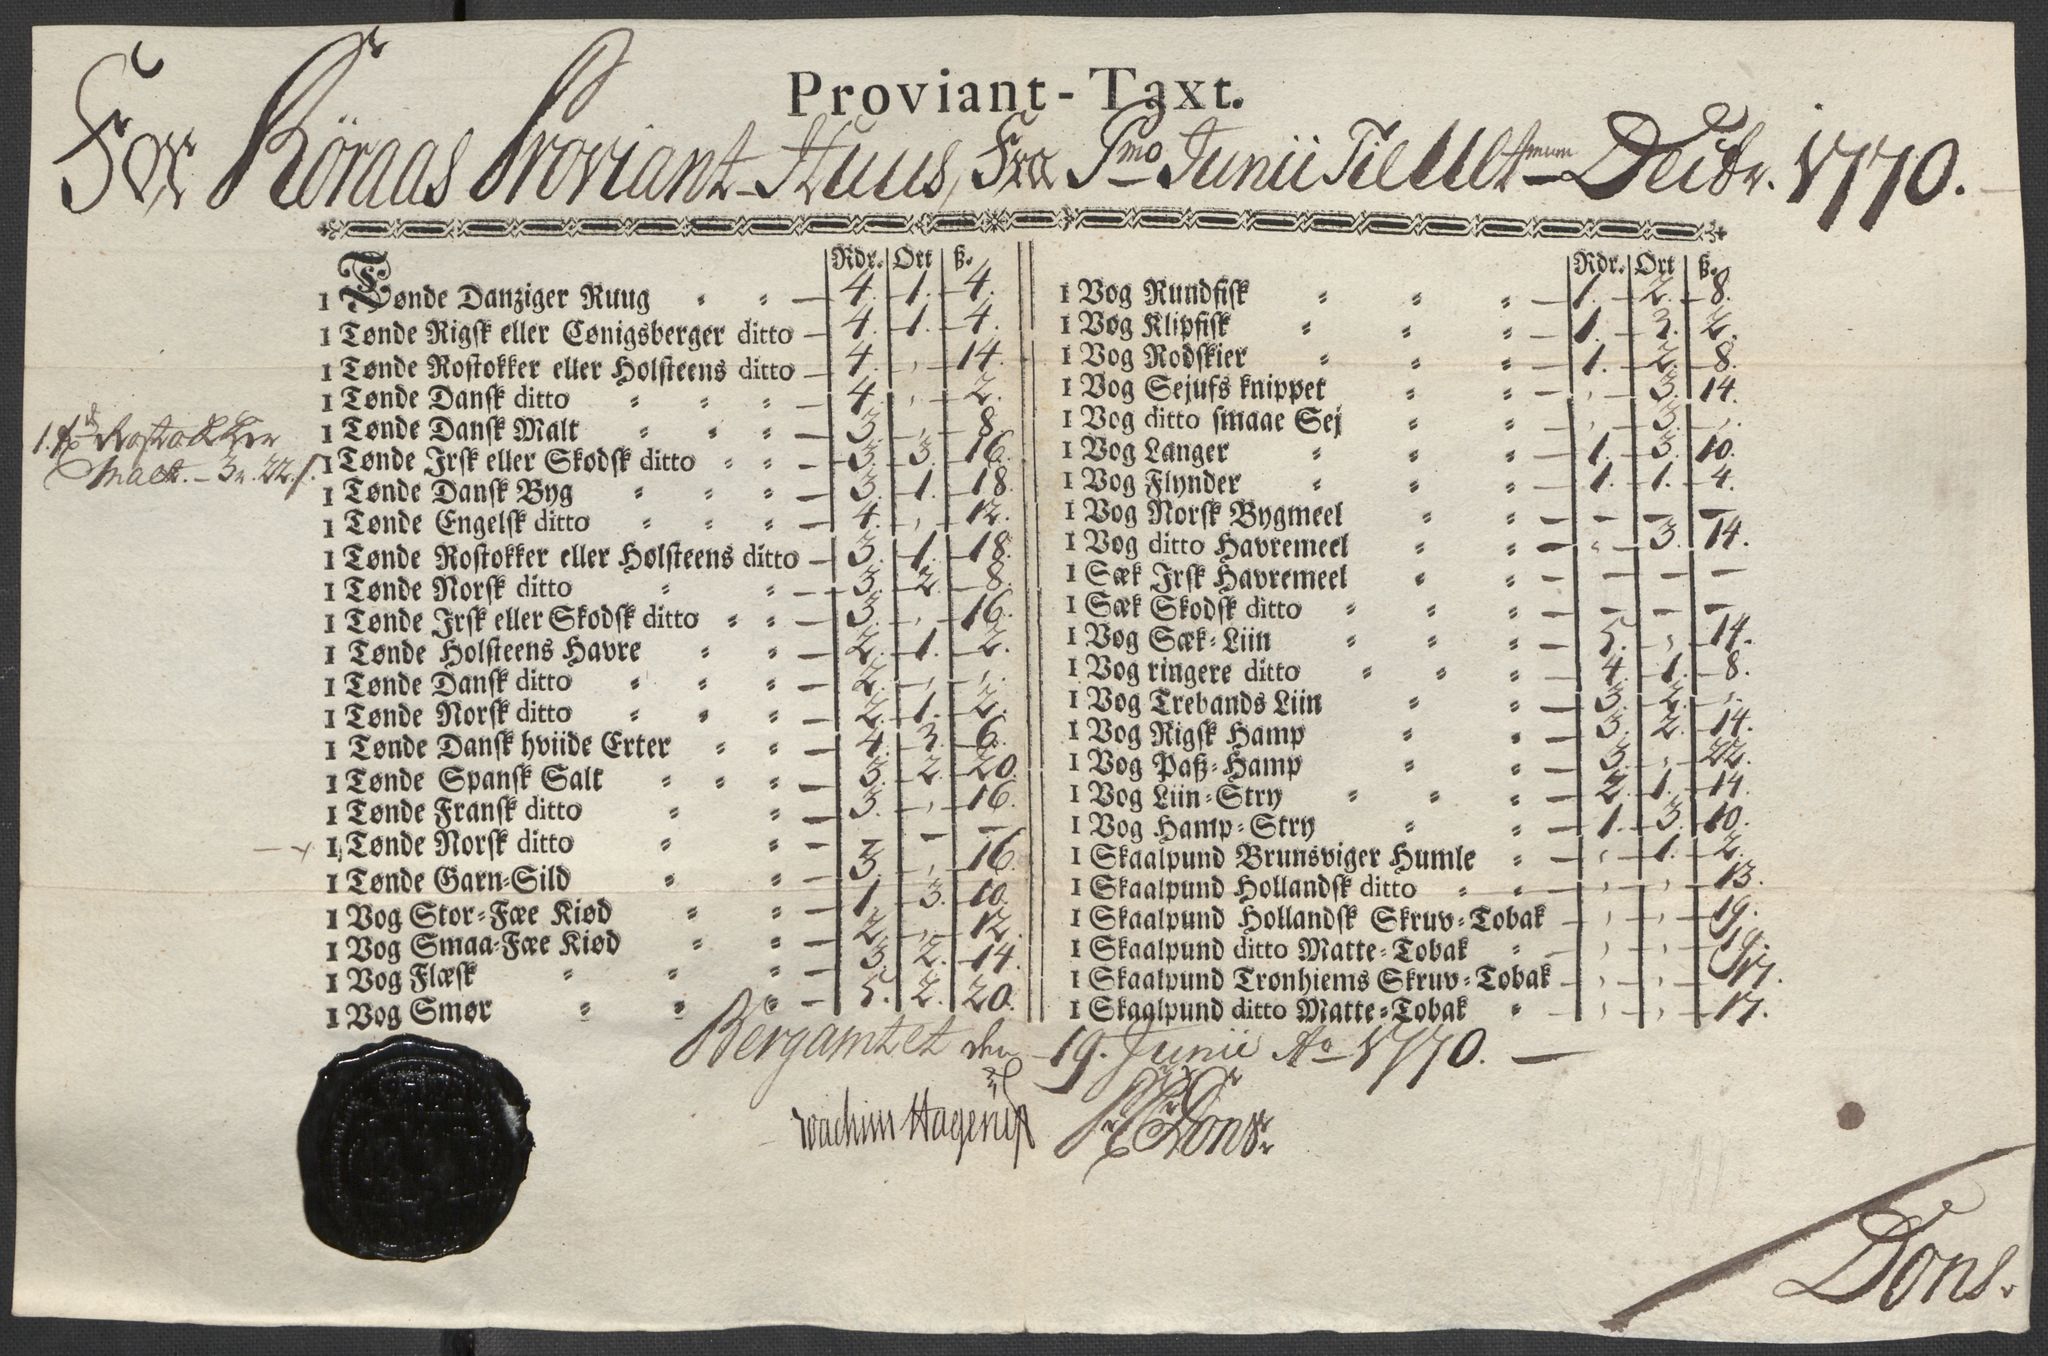 Proviant-Taxt.
For Röraas Proviant-Huus, Fra Pmo Junii Til Ultmum Decbr. 1770.
Rdr. Ort ß.
1 Tønde Danziger Ruug 4. 1. 4.
1 Tønde Rigsk eller Cønigsberger ditto 4. 1. 4.
1 Tønde Rostokker eller Holsteens ditto 4. , 14.
1 Tønde Dansk ditto 4. , 2.
1 Tønde Dansk Malt 3. , 8.
1. td Rostokker
Malt. - 3r. 22. s.
1 Tønde Irsk eller Skodsk ditto 3. 3. 16.
1 Tønde Dansk Byg 3. 1. 18.
1 Tønde Engelsk ditto 4. , 12.
1 Tønde Rostokker eller Holsteens ditto 3. 1. 18.
1 Tønde Norsk ditto 3. 2. 8.
1 Tønde Irsk eller Skodsk ditto 3. , 16.
1 Tønde Holsteens Havre 2. 1. 2.
1 Tønde Dansk ditto 2. , ,
1 Tønde Norsk ditto 2. 1. 2.
1 Tønde Dansk hviide Erter 4. 3. 6.
1 Tønde Spansk Salt 3. 2. 20.
1 Tønde Fransk ditto 3. , 16.
1 Tønde Norsk ditto - - -
1 Tønde Garn-Sild 3. , 16.
1 Vog Stor-Fæe Kiød 1. 3. 10.
1 Vog Smaa-Fæe Kiød 2. , 12.
1 Vog Flæsk 3. 2. 14.
1 Vog Smør 5. 2. 20.
Rdr. Ort ß.
1 Vog Rundfisk 1. 2. 8.
1 Vog Klipfisk 1. 3. 2.
1 Vog Rodskier 1. 2. 8.
1 Vog Sejufs knippet , 3. 14.
1 Vog ditto smaae Sej , 3. ,
1 Vog Langer 1. 3. 10.
1 Vog Flynder 1. 1. 4.
1 Vog Norsk Bygmeel - - -
1 Vog ditto Havremeel , 3. 14.
1 Sæk Irsk Havremeel - - -
1 Sæk Skodsk ditto - - -
1 Vog Sæk-Liin 5. , 14.
1 Vog ringere ditto 4. 1. 8.
1 Vog Trebands Liin 3. 2. ,
1 Vog Rigsk Hamp 3. 2. 14.
1 Vog Paß-Hamp 3. , 22.
1 Vog Liin-Stry 2. 1. 14.
1 Vog Hamp-Stry 1. 3. 10.
1 Skaalpund Brunsviger Humle , 1. 2.
1 Skaalpund Hollandsk ditto , , 13.
1 Skaalpund Hollandsk Skruv-Tobak , , 19.
1 Skaalpund ditto Matte-Tobak , , 19.
1 Skaalpund Tronhiems Skruv-Tobak , , 17.
1 Skaalpund ditto Matte-Tobak , , 17.
Bergamtet den 19. Junii Ao 1770.
Joachim Hagerup Dons
Dons.